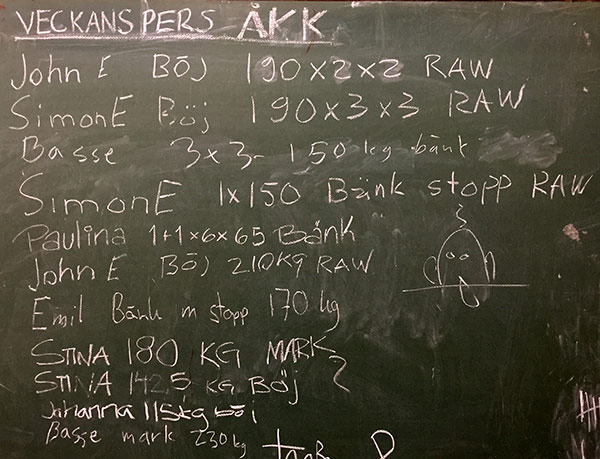 VECKANS PERS ÅKK
John E Böj 190x2x2 RAW
SimonE Böj 190x3x3 RAW
Basse 3x3- 150 kg bänk
SimonE 1x150 Bänk stopp RAW
Paulina 1+1x6x65 Bänk
John E Böj 210KG RAW
Emil Bänk m stopp 170 kg
STINA 180 KG MARK
STINA 142,5 KG Böj
Johanna 115kg böj
Basse mark 230kg